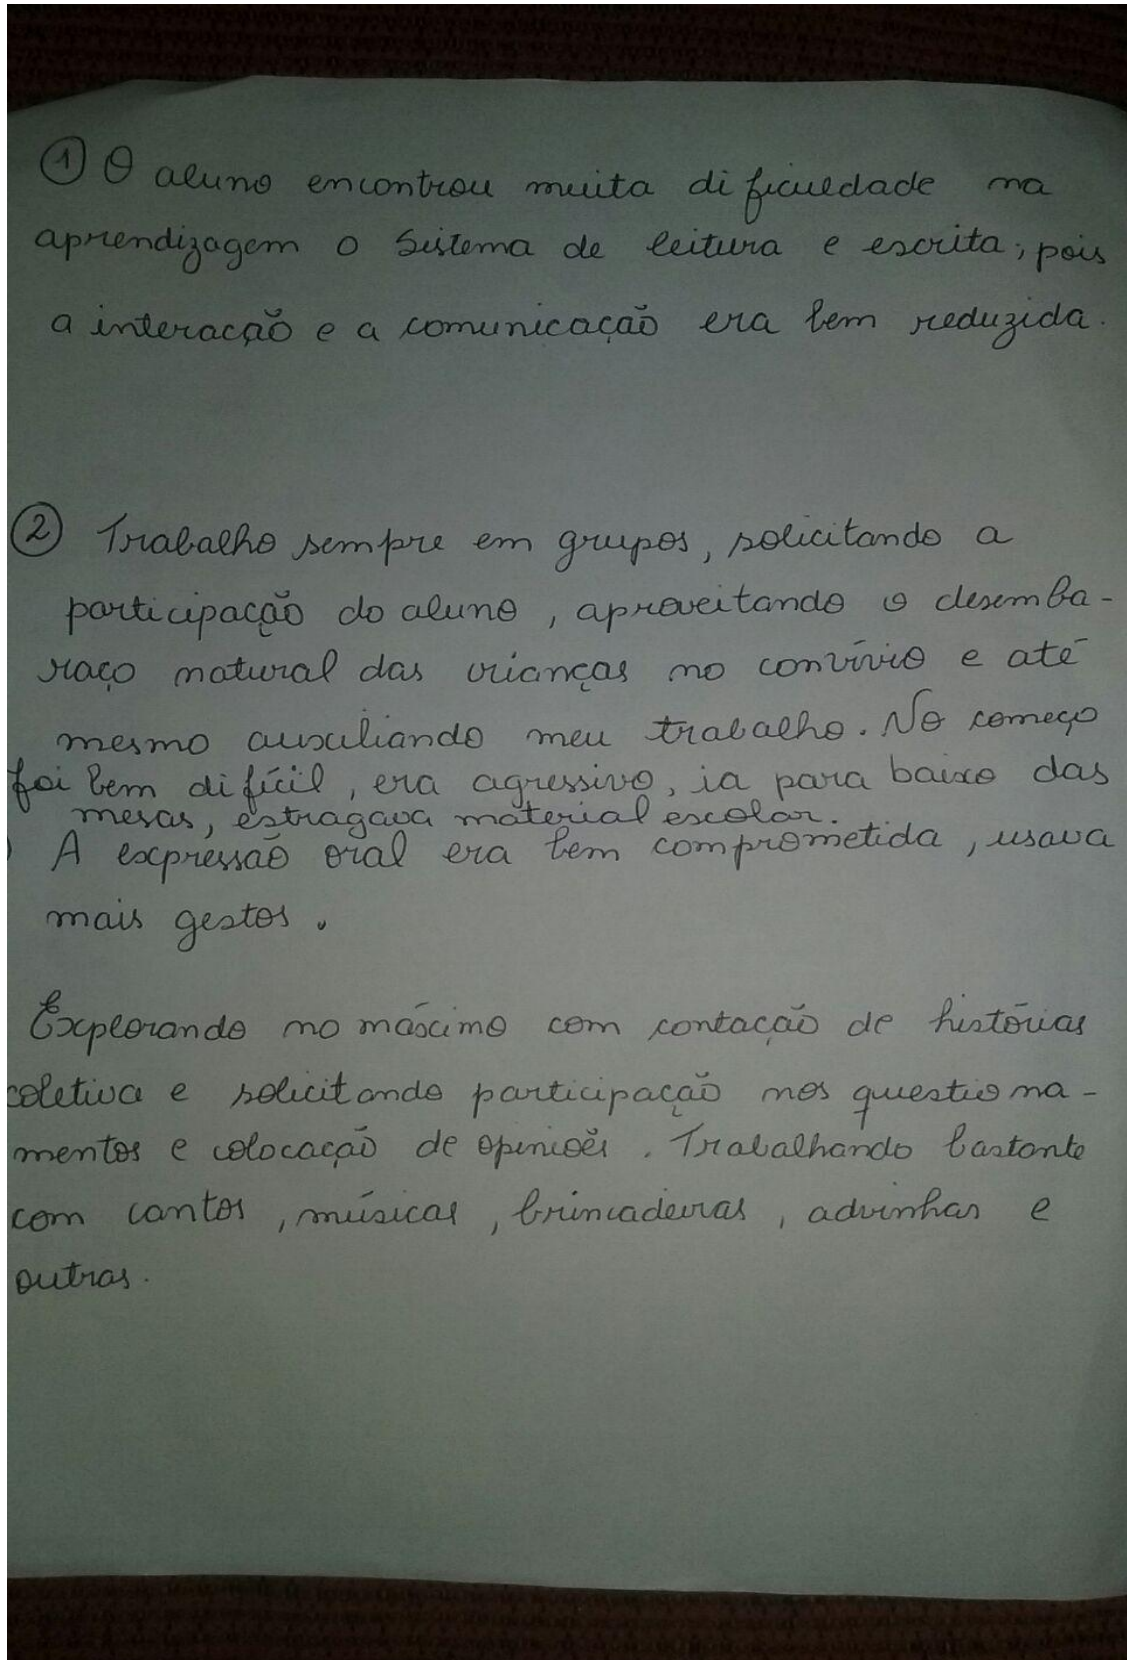 ① O aluno encontrou muita dificuldade na
aprendizagem o sistema de leitura e escrita, pois
a interacção e a comunicação era bem reduzida.
② Trabalho sempre em grupos, solicitando a
participação do aluno, aproveitando o desemba-
raço natural das crianças no convívio e até
mesmo auxiliando meu trabalho. No começo
foi bem difícil, era agressivo, ia para baixo das
mesas, estragava material escolar.
) A expressão oral era bem comprometida, usava
mais gestos.
Explorando no máximo com contação de histórias
coletiva e solicitando participação nos questiona-
mentos e colocação de opiniões. Trabalhando bastante
com cantos, músicas, brincadeiras, advinhas e
outras.